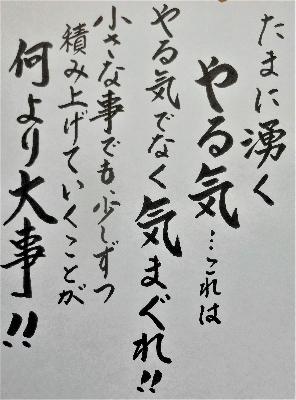 たまに湧く
やる気…これは
やる気でなく気まぐれ!!
小さな事でも、少しずつ
積み上げていくことが
何より大事!!